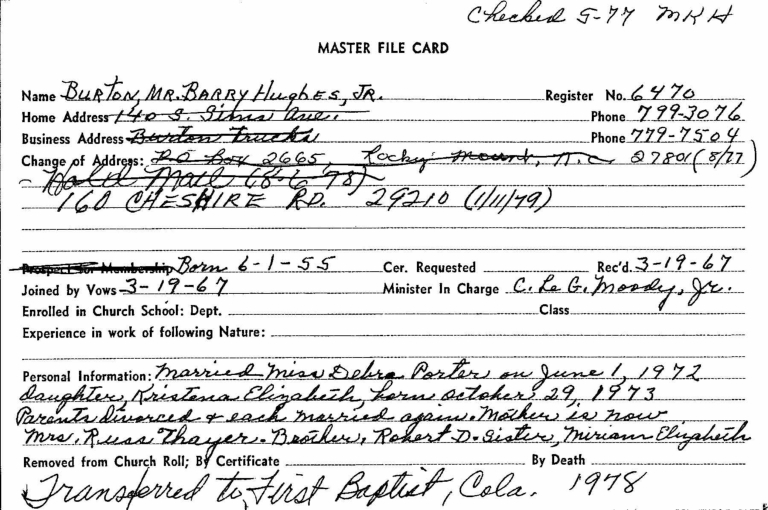 Checked 5-77 MKH
MASTER FILE CARD
Name BURTON, MR. BARRY HughES, JR. Register No. 6470
Home Address 140 S. Sims Ave. Phone 799-3076
Business Address Burton Trucks Phone 779-7504
Change of Address: P.O. Box 2665, Rocky Mount, N.C. 27801 (8/77)
Hold Mail (8-6-78)
160 CHESHIRE RD. 29210 (1/11/79)
Prospect for Membership Born 6-1-55 Cer. Requested Rec'd. 3-19-67
Joined by Vows 3-19-67 Minister In Charge C. Le G. Moody, Jr.
Enrolled in Church School: Dept. Class
Experience in work of following Nature:
Personal Information: Married Miss Debra Porter on June 1, 1972
daughter, Kristena Elizabeth, born October 29, 1973
Parents divorced & each married again. Mother is now
Mrs. Russ Thayer. Brother, Robert D. Sister, Miriam Elizabeth
Removed from Church Roll; By Certificate By Death
Transferred to First Baptist, Cola. 1978